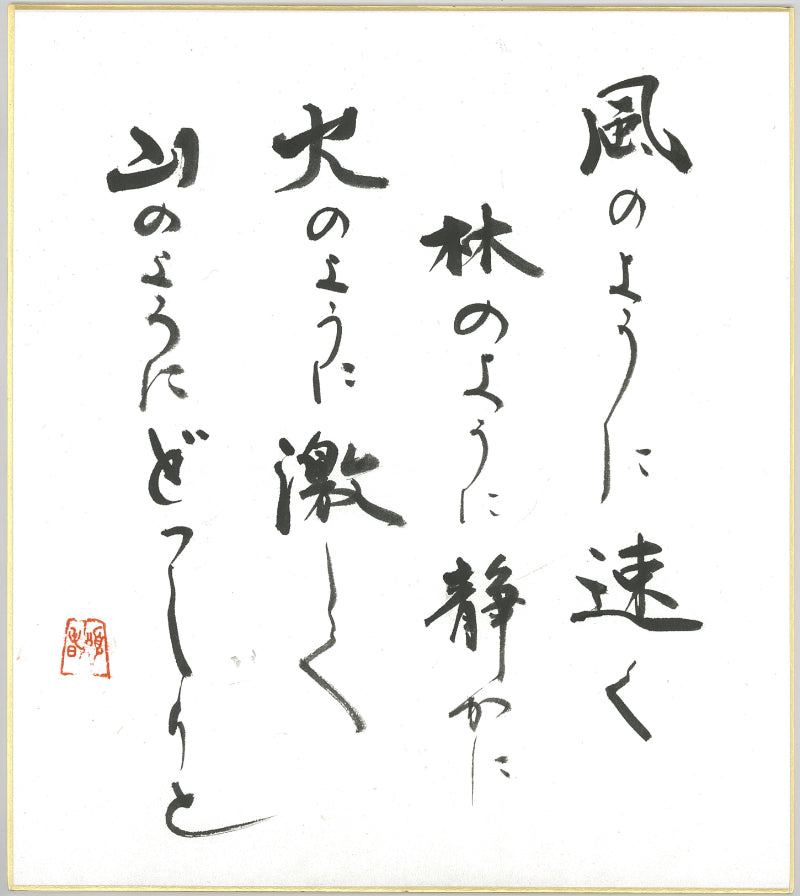 風のように速く
林のように静かに
火のように激しく
山のようにどっしりと